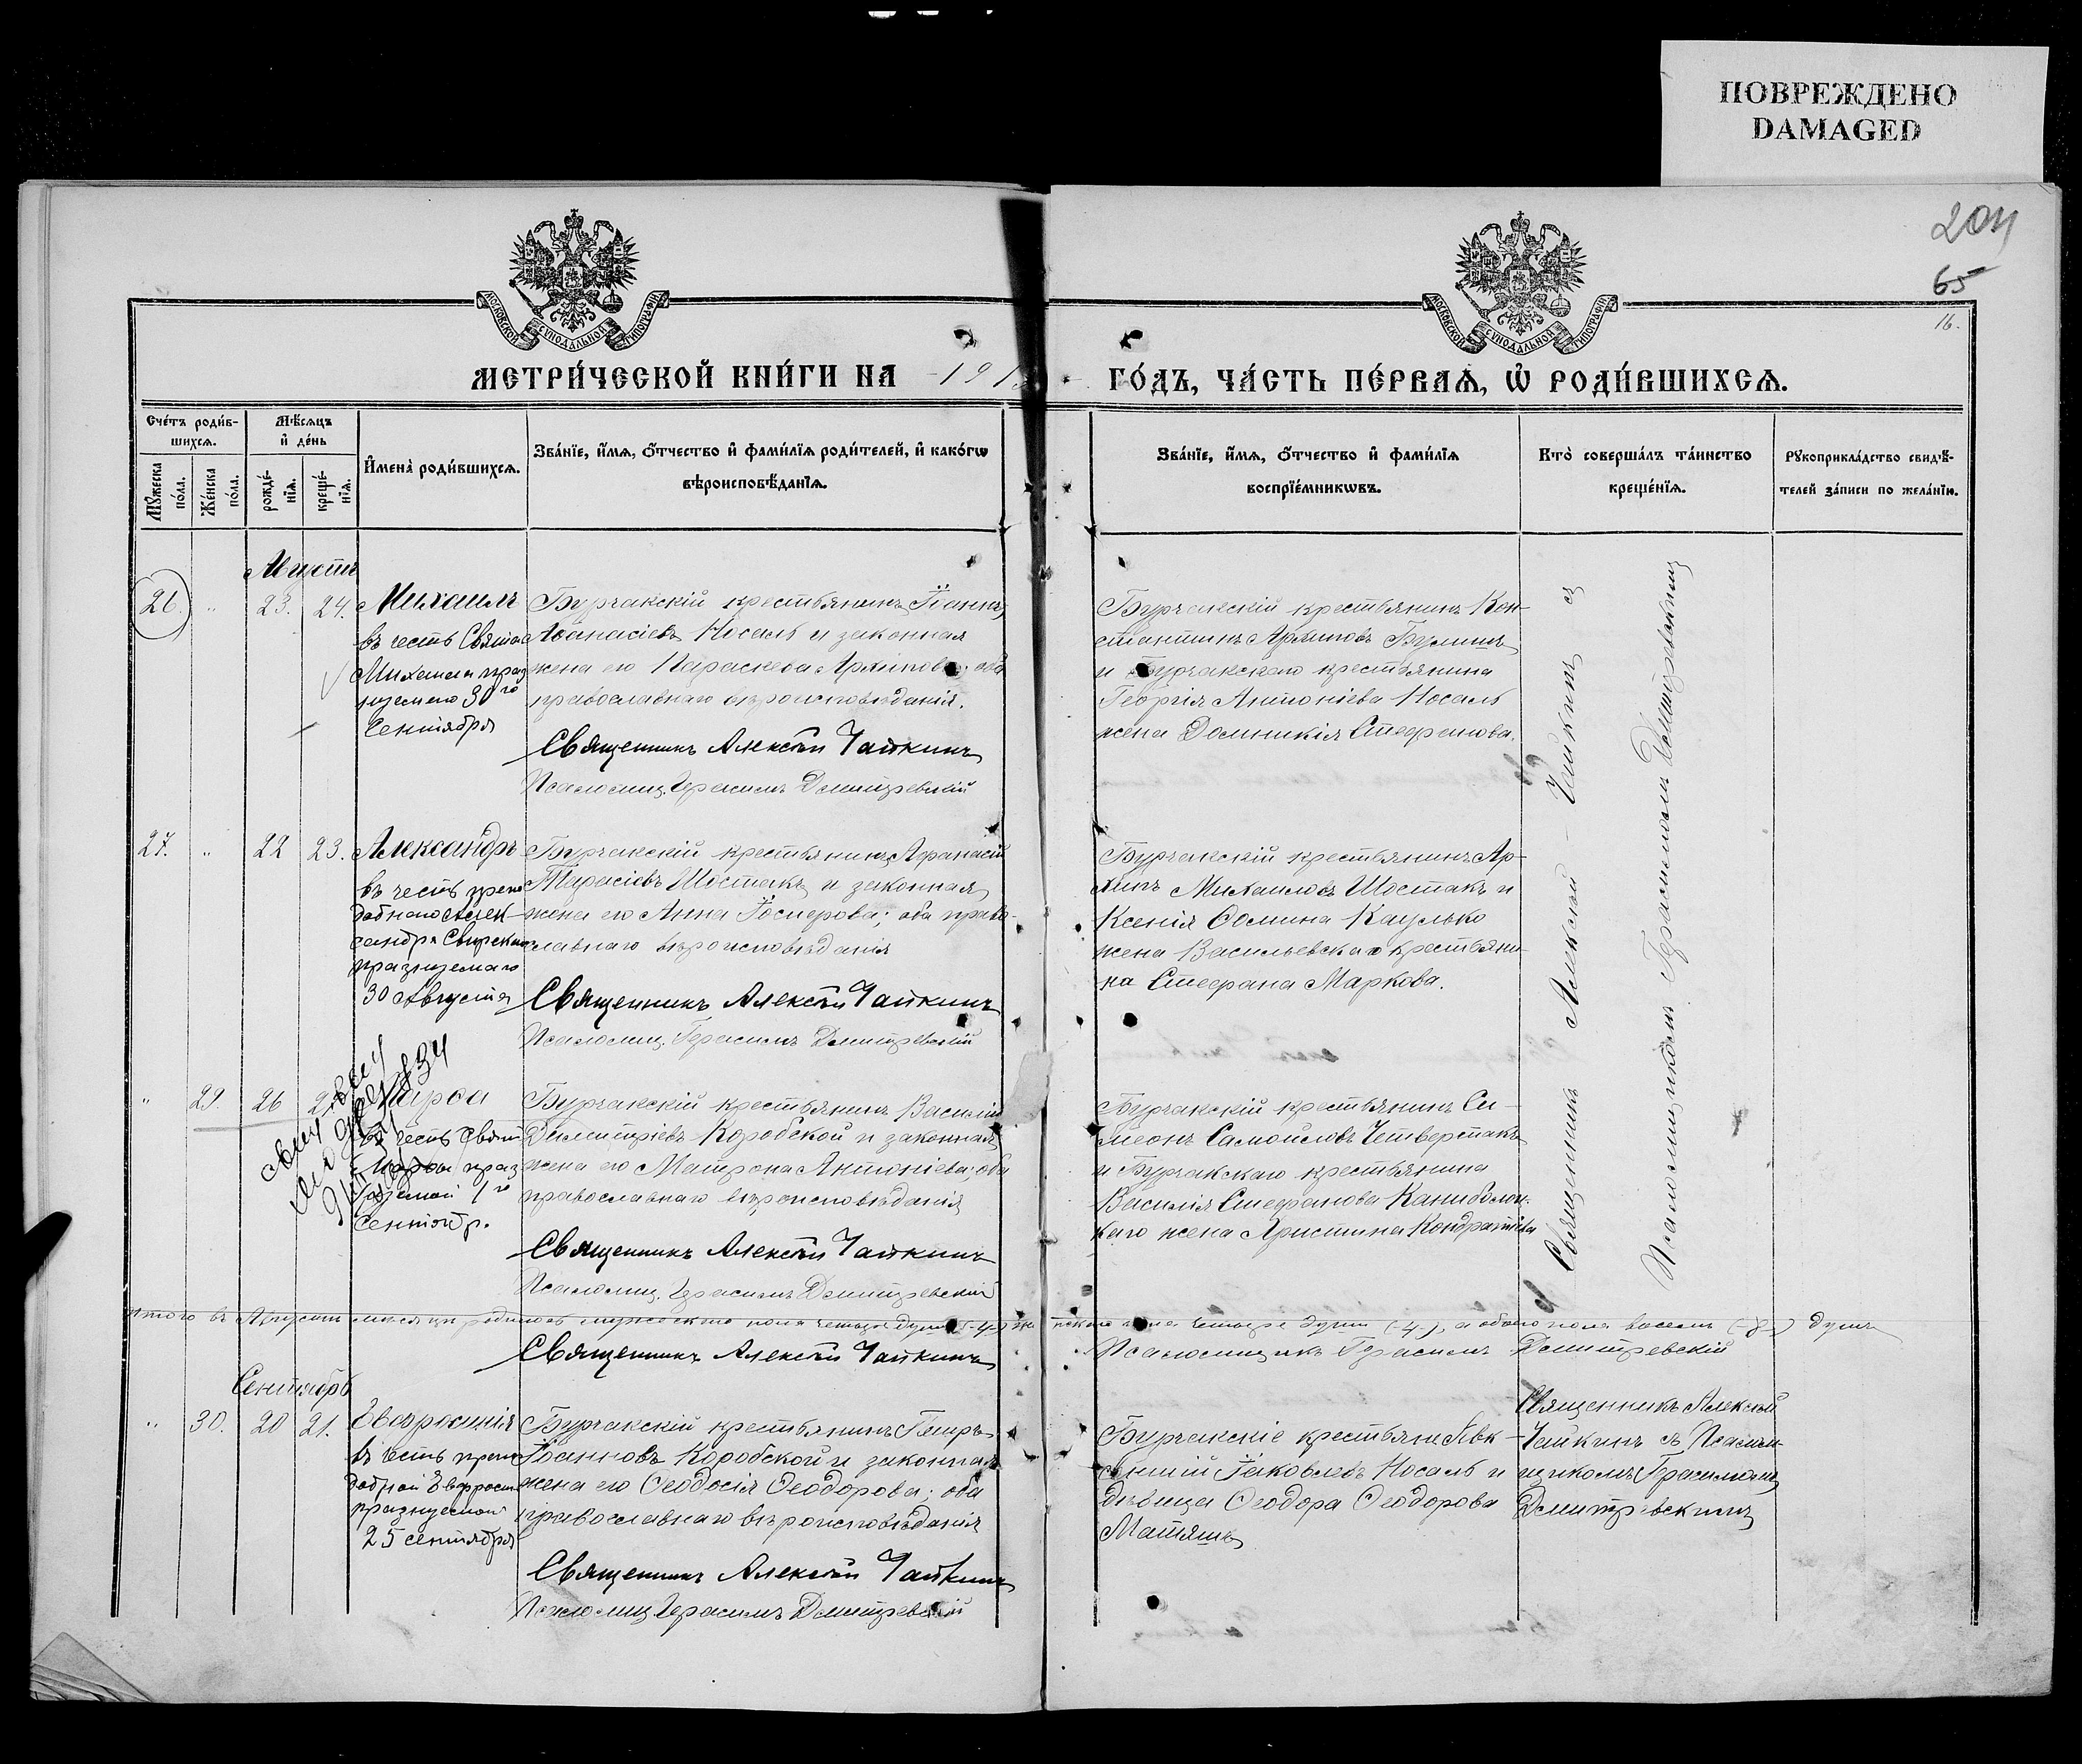 ПОВРЕЖДЕНО
DAMAGED
204
65
16.
МОСКОВСКОЙ СУНОДАЛЬНОЙ ТИПОГРАФІИ
МОСКОВСКОЙ СУНОДАЛЬНОЙ ТИПОГРАФІИ
МЕТРИ́ЧЕСКОЙ КНИ́ГИ НА 191
ГО́ДЪ, ЧА́СТЬ ПЕ́РВАѦ, Ѿ РОДИ́ВШИХСѦ.
Сче́тъ роди́в-
шихсѧ.
Мꙋжеска по́ла.
Же́нска по́ла.
Мѣ́сѧцъ
и҆ де́нь
рожде́-
нїѧ.
креще́-
нїѧ.
И҆мена̀ роди́вшихсѧ.
Зва́нїе, и҆́мѧ, ѻ҆́тчество и҆ фами́лїѧ роди́телей, и҆ како́гѡ
вѣроисповѣ́данїѧ.
Зва́нїе, и҆́мѧ, ѻ҆́тчество и҆ фами́лїѧ
воспрїе́мникѡвъ.
Кто̀ соверша́лъ та́инство
креще́нїѧ.
Рꙋкоприкла́дство свидѣ́-
телей за́писи по жела́нїю.
26. " 23. 24. Михаилъ
въ честь Свята
Михаила праз
нуемаго 30го
Сентября
Бурчакскій крестьянинъ Іоаннъ
Аѳанасіевъ Носаль и законная
жена его Параскева Архипова; оба
православнаго вѣроисповѣданія.
Священникъ Алексѣй Чайкинъ
Псаломщ. Герасимъ Дмитревскій
Бурчакскій крестьянинъ Кон-
стантинъ Архиповъ
и Бурчакскаго крестьянина
Георгія Антоніева Носаль
жена Домникія Стефанова.
27. " 22 23. Александръ
въ честь препо
добнаго Алек-
сандра Свирскаго
празнуемаго
30 Августа
Бурчакскій крестьянинъ Афанасій
Тарасіевъ Шостакъ и законная
жена его Анна Іосифова; оба право-
славнаго вѣроисповѣданія
Священникъ Алексѣй Чайкинъ
Псаломщ. Герасимъ Дмитревскій
Бурчакскій крестьянинъ Ар-
хипъ Михаиловъ Шостакъ и
Ксенія Ѳомина
жена Васильевскаго крестьяни-
на Стефана Маркова.
" 29. 26 Марѳа
въ честь Святой
Марѳы праз
нуемой 1го
Сентябр.
Бурчакскій крестьянинъ Василій
Димитріевъ Коробской и законная
жена его Матрона Антоніева; оба
православнаго вѣроисповѣданія
Священникъ Алексѣй Чайкинъ
Псаломщ. Герасимъ Дмитревскій
Бурчакскій крестьянинъ Си-
меонъ Самойловъ Четвертакъ
и Бурчакскаго крестьянина
Василія Стефанова
каго жена Христина Кондратіева
Священникъ Алексѣй Чайкинъ съ
Псаломщикомъ Герасимомъ Дмитревскимъ
Итого въ Августѣ мѣсяцѣ родилось мужескаго пола четыре души (-4-) женскаго пола четыре души (-4-), а обоего пола восемь (-8-) душъ
Священникъ Алексѣй Чайкинъ
Псаломщикъ Герасимъ Дмитревскій
Сентябрь
" 30. 20 21. Евфросинія
въ честь препо
добной Евфросин
празнуемой
25 сентября
Бурчакскій крестьянинъ Петръ
Іоанновъ Коробской и законная
жена его Ѳеодосія Ѳеодорова; оба
православнаго вѣроисповѣданія
Священникъ Алексѣй Чайкинъ
Псаломщ Герасимъ Дмитревскій
Бурчакскіе крестьяне Авк-
сентій Іаковлевъ Носаль и
дѣвица Ѳеодора Ѳеодорова
Матяшъ
Священникъ Алексѣй
Чайкинъ съ Псалом-
щикомъ Герасимомъ
Дмитревскимъ